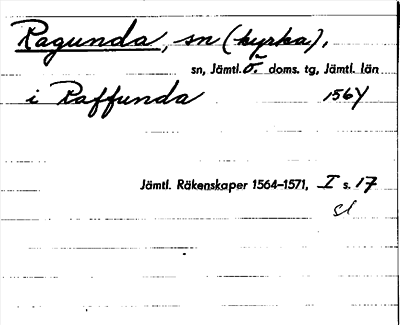 Ragunda, sn (kyrka),
sn, Jämtl. ö. doms. tg, Jämtl. län
i Raffunda 1564
Jämtl. Räkenskaper 1564-1571, I s. 17